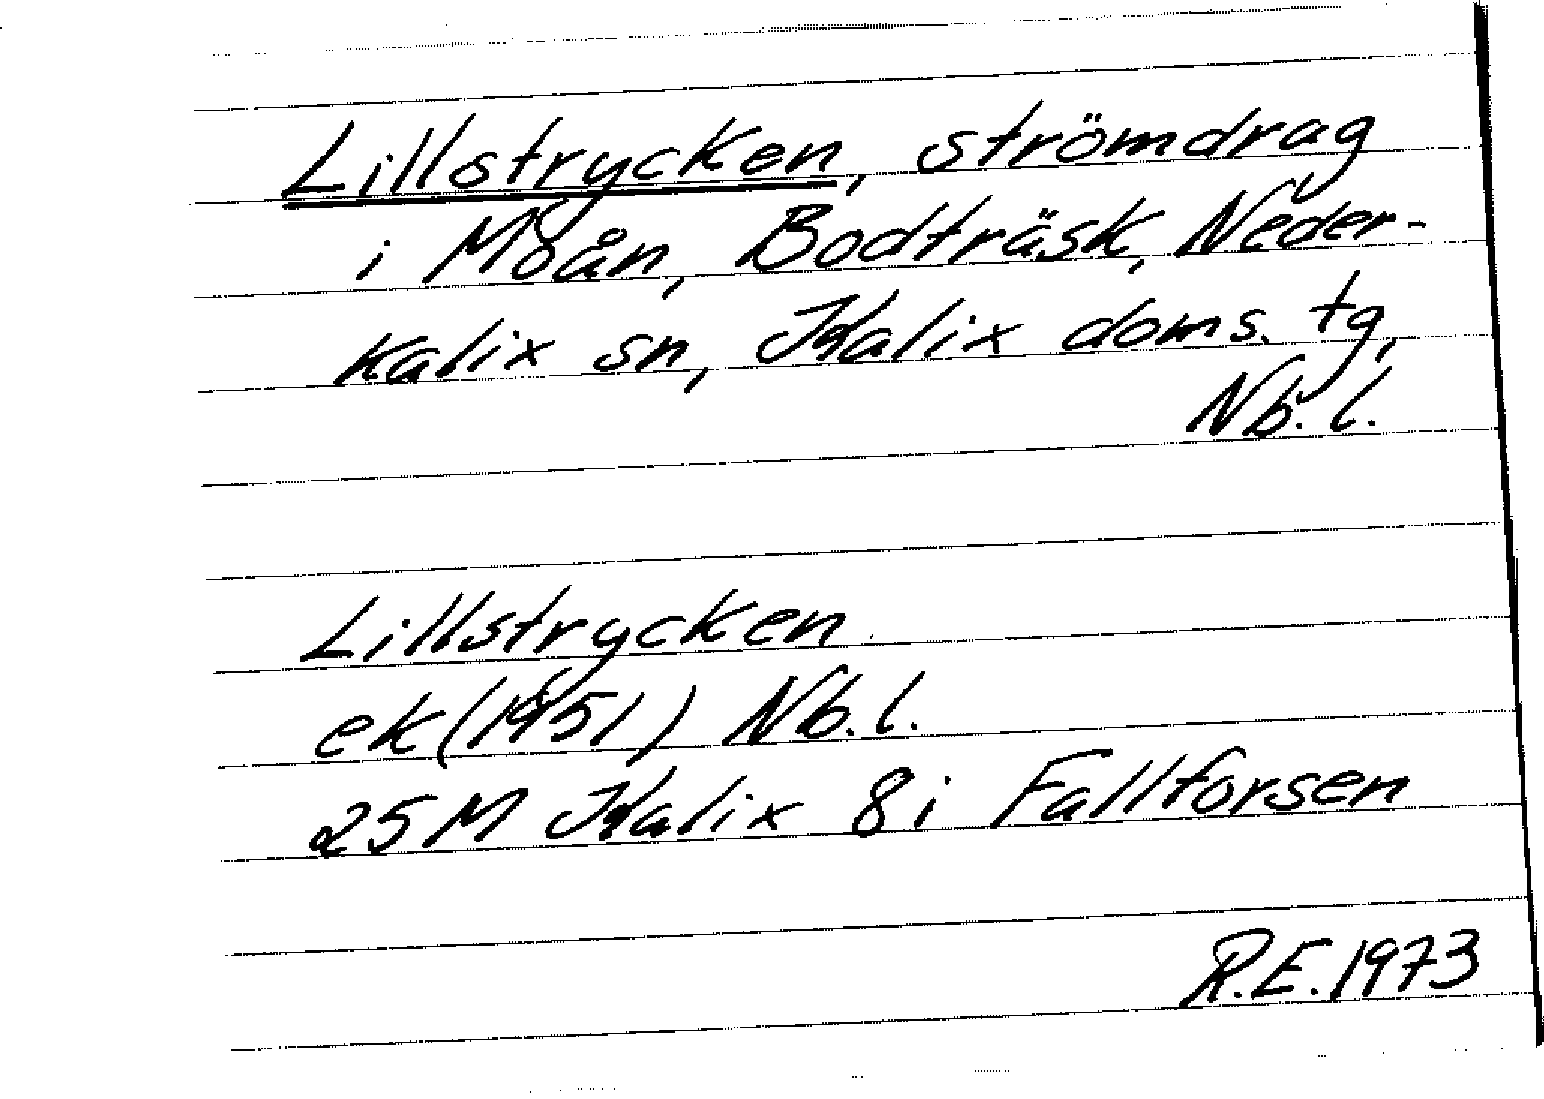 Lillstrycken, strömdrag
i Moån, Bodträsk, Neder-
kalix sn, Kalix doms. tg,
Nb. l.
Lillstrycken
ek (1951) Nb. l.
25 M Kalix 8 i Fallforsen
R.E. 1973